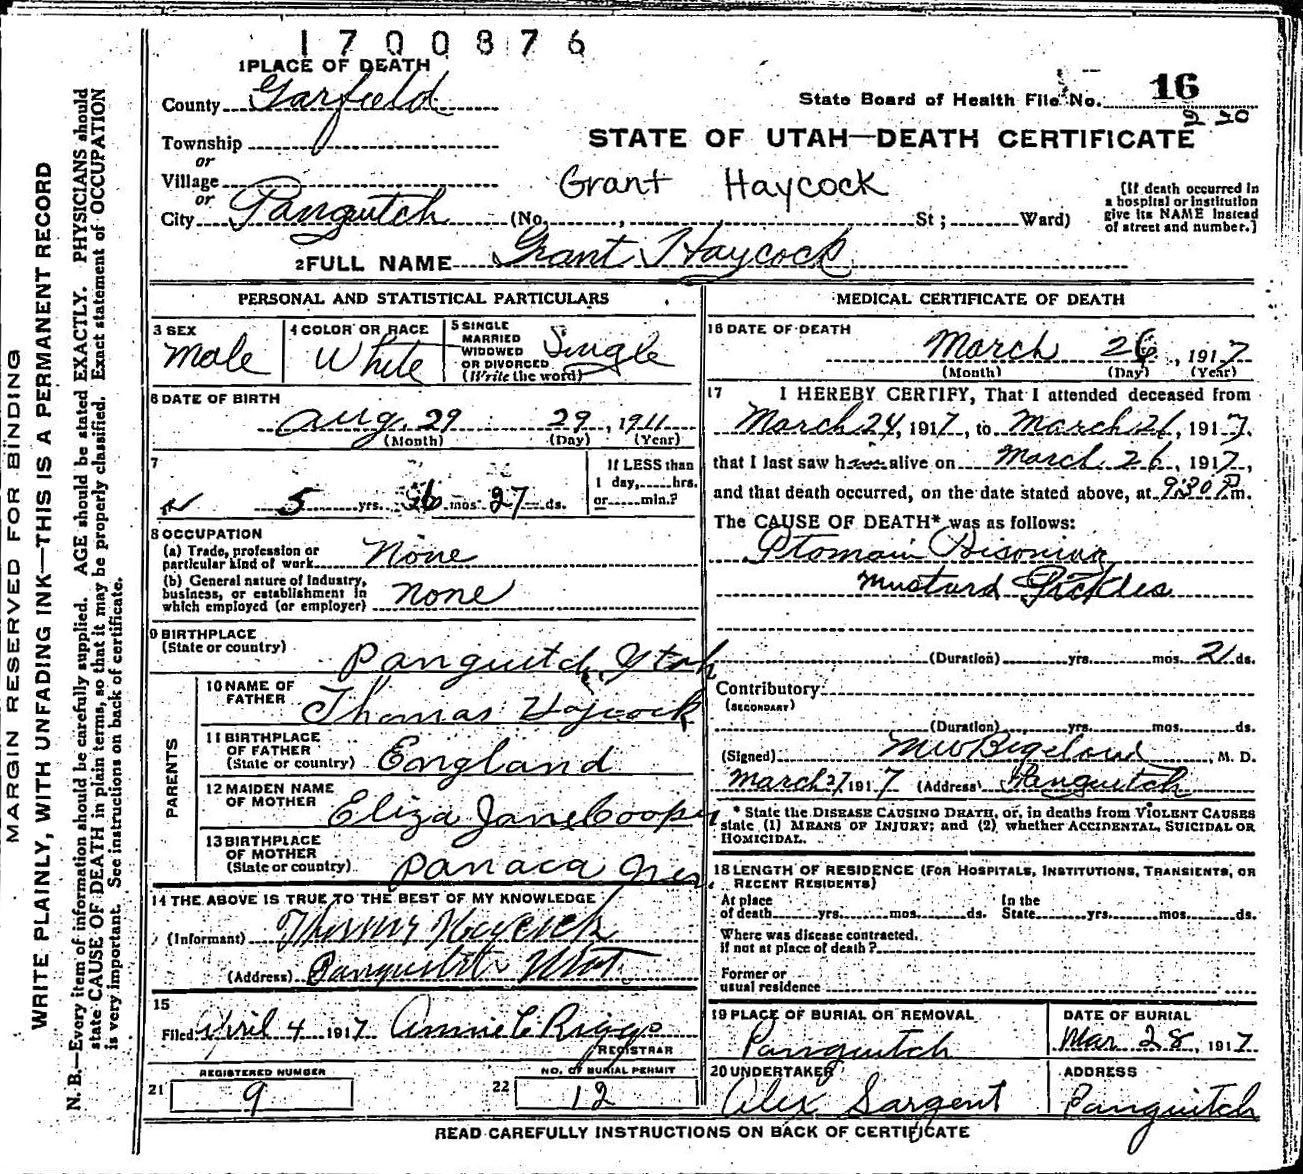 1700876
1 PLACE OF DEATH
County Garfield
State Board of Health File No. 16
Township
or
Village
or
City Panguitch (No. , St ; Ward)
STATE OF UTAH—DEATH CERTIFICATE
Grant Haycock
[If death occurred in
a hospital or institution
give its NAME instead
of street and number.]
2 FULL NAME Grant Haycock
PERSONAL AND STATISTICAL PARTICULARS
3 SEX
Male
4 COLOR OR RACE
White
5 SINGLE
MARRIED
WIDOWED
OR DIVORCED
(Write the word)
Single
6 DATE OF BIRTH
Aug. 29 29, 1911
(Month) (Day) (Year)
7
5 yrs. 6 mos 27 ds.
If LESS than
1 day, hrs.
or min.?
8 OCCUPATION
(a) Trade, profession or
particular kind of work None
(b) General nature of Industry,
business, or establishment in
which employed (or employer) None
9 BIRTHPLACE
(State or country)
Panguitch Utah
PARENTS
10 NAME OF
FATHER
Thomas Haycock
11 BIRTHPLACE
OF FATHER
(State or country) England
12 MAIDEN NAME
OF MOTHER
Eliza Jane Cooper
13 BIRTHPLACE
OF MOTHER
(State or country) Panaca Nev
14 THE ABOVE IS TRUE TO THE BEST OF MY KNOWLEDGE
(Informant) Thomas Haycock
(Address) Panguitch Utah
15
Filed April 4 1917 Annie C Riggs
REGISTRAR
REGISTERED NUMBER
21 9
NO. OF BURIAL PERMIT
22 12
MEDICAL CERTIFICATE OF DEATH
16 DATE OF DEATH
March 26, 1917
(Month) (Day) (Year)
17 I HEREBY CERTIFY, That I attended deceased from
March 24, 1917, to March 26, 1917.
that I last saw h alive on March 26, 1917,
and that death occurred, on the date stated above, at 9:30 P.m.
The CAUSE OF DEATH* was as follows:
Ptomain Pisoning
Mustard Pickles
(Duration) yrs. mos. 2 ds.
Contributory:
(SECONDARY)
(Duration) yrs. mos. ds.
(Signed) M W Bigelow, M. D.
March 27 1917 (Address) Panguitch
* State the DISEASE CAUSING DEATH, or, in deaths from VIOLENT CAUSES
state (1) MEANS OF INJURY; and (2) whether ACCIDENTAL, SUICIDAL OR
HOMICIDAL.
18 LENGTH OF RESIDENCE (FOR HOSPITALS, INSTITUTIONS, TRANSIENTS, OR
RECENT RESIDENTS)
At place
of death yrs. mos. ds.
In the
State yrs. mos. ds.
Where was disease contracted.
if not at place of death?
Former or
usual residence
19 PLACE OF BURIAL OR REMOVAL
Panguitch
DATE OF BURIAL
Mar 28, 1917.
20 UNDERTAKER
Alex Sargent
ADDRESS
Panguitch
READ CAREFULLY INSTRUCTIONS ON BACK OF CERTIFICATE
MARGIN RESERVED FOR BINDING
WRITE PLAINLY, WITH UNFADING INK—THIS IS A PERMANENT RECORD
N. B.—Every item of information should be carefully supplied. AGE should be stated EXACTLY. PHYSICIANS should
state CAUSE OF DEATH in plain terms, so that it may be properly classified. Exact statement of OCCUPATION
is very important. See instructions on back of certificate.